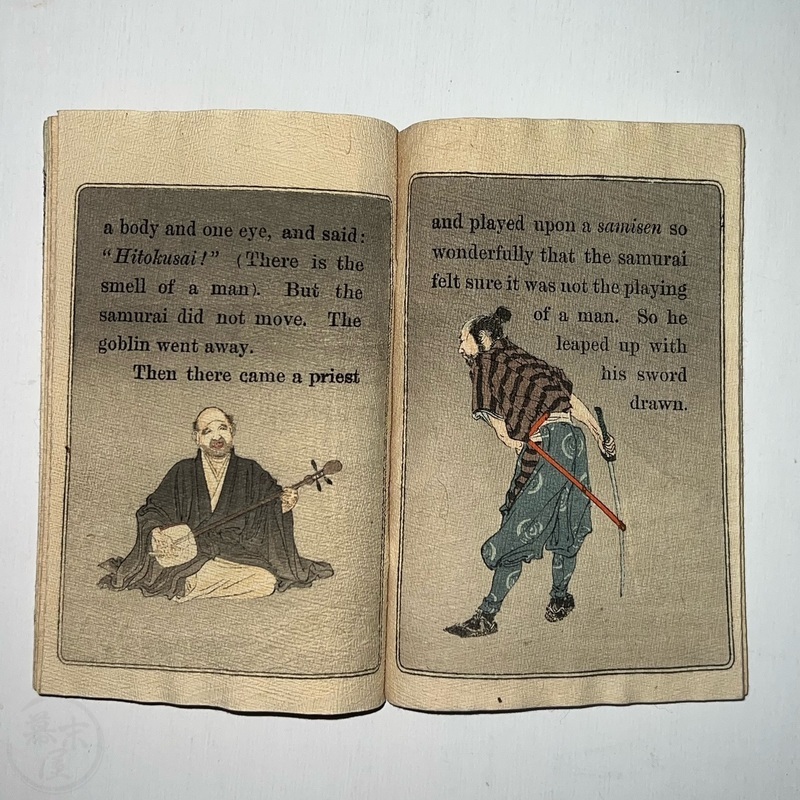 a body and one eye, and said:
"Hitokusai!" (There is the
smell of a man). But the
samurai did not move. The
goblin went away.
Then there came a priest
and played upon a samisen so
wonderfully that the samurai
felt sure it was not the playing
of a man. So he
leaped up with
his sword
drawn.